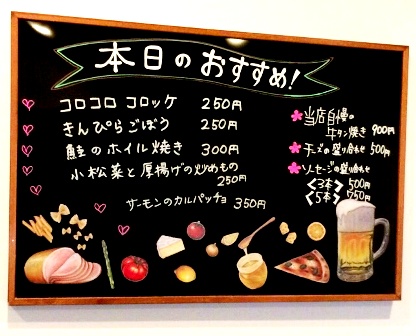 本日のおすすめ!
コロコロ コロッケ 250円
きんぴらごぼう 250円
鮭のホイル焼き 300円
小松菜と厚揚げの炒めもの
250円
サーモンのカルパッチョ 350円
当店自慢の
牛タン焼き 900円
チーズの盛り合わせ 500円
ソーセージの盛り合わせ
<3本> 500円
<5本> 750円